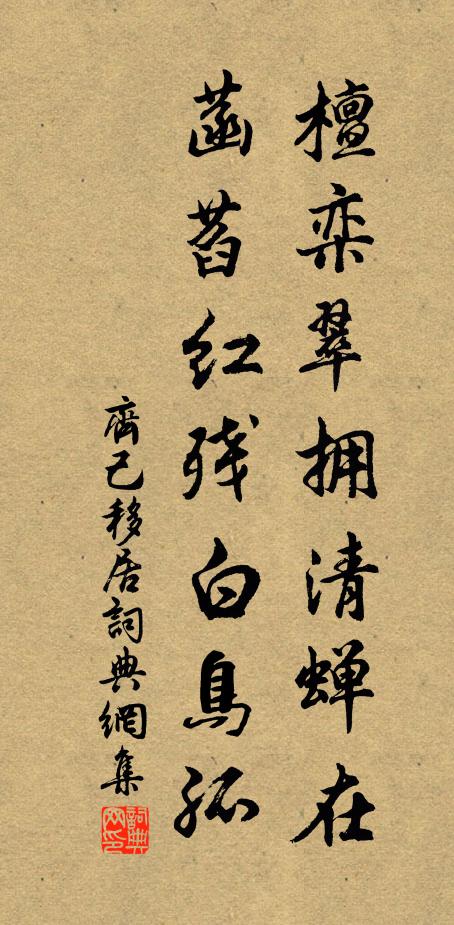 檀栾翠拥清蝉在
菡萏红残白鳥孤
齊己移居詞典網集
詞典網印